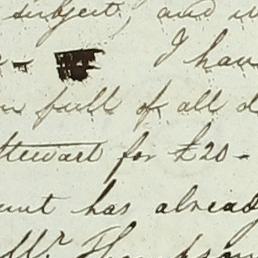 subject, and
I hav
full of all d
Stewart for £20-
unt has already
Mr. Thompson